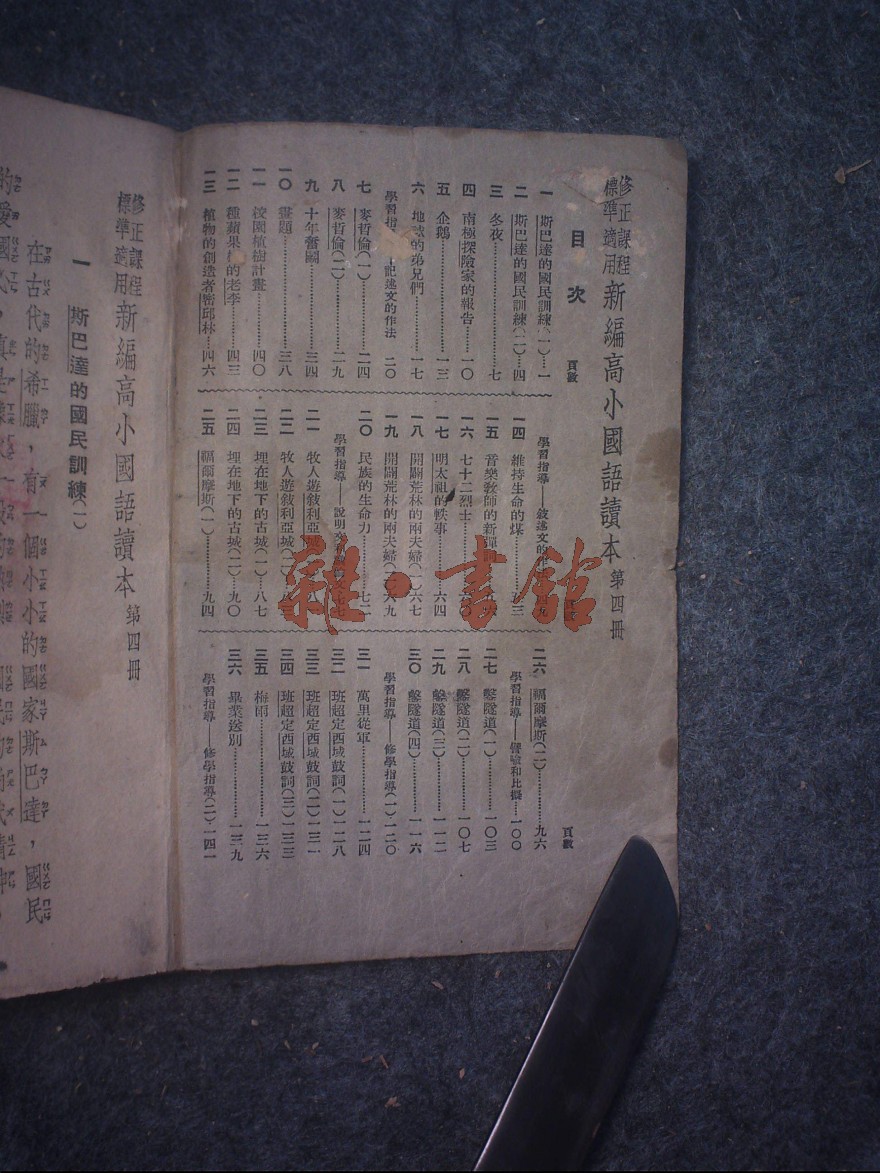 修正課程
標準適用
新編高小國語讀本 第四冊
目次
頁數
一 斯巴達的國民訓練(一)……一
二 斯巴達的國民訓練(二)……四
三 冬夜……七
四 南極探險家的報告……一〇
五 企鵝……一三
六 地球的弟兄們……一七
學習指導 記述文的作法 二〇
七 麥哲倫(一)……二四
八 麥哲倫(二)……二九
九 十年奮鬭……三四
一〇 畫題……三八
一一 校園植樹計畫……四〇
一二 種蘋果 的老李……四三
一三 植物的創造者密邱林……四六
學習指導——敍述文的作
一四 維持生命的煤…… 三
一五 音樂教師的新
一六 七十二烈士……
一七 明太祖的軼事……六四
一八 開闢荒林的兩夫婦(一)六七
一九 開闢荒林的兩夫婦(二)六九
二〇 民族的生命力……七二
學習指導——說明文
二一 牧人遊敍利亞
二二 牧人遊敍利亞
二三 埋在地下的古城(一)八七
二四 埋在地下的古城(二)九〇
二五 福爾摩斯(一)……九四
頁數
二六 福爾摩斯(二)……九六
學習指導——譬喻和比擬……一〇〇
二七 鑿隧道(一)……一〇三
二八 鑿隧道(二)……一〇七
二九 鑿隧道(三)……一一二
三〇 鑿隧道(四)……一一六
學習指導——修學指導(一)一二〇
三一 萬里從軍……一二四
三二 班超定西域鼓詞(一)一二八
三三 班超定西域鼓詞(二)一三一
三四 班超定西域鼓詞(三)一三三
三五 梅雨……一三六
三六 畢業送別……一三九
學習指導——修學指導(二)一四一
修正課程
標準適用
新編高小國語讀本 第四冊
一 斯巴達的國民訓練(一)
在古代的希臘，有一個小小的國家斯巴達，國民
的愛國
雜·書館